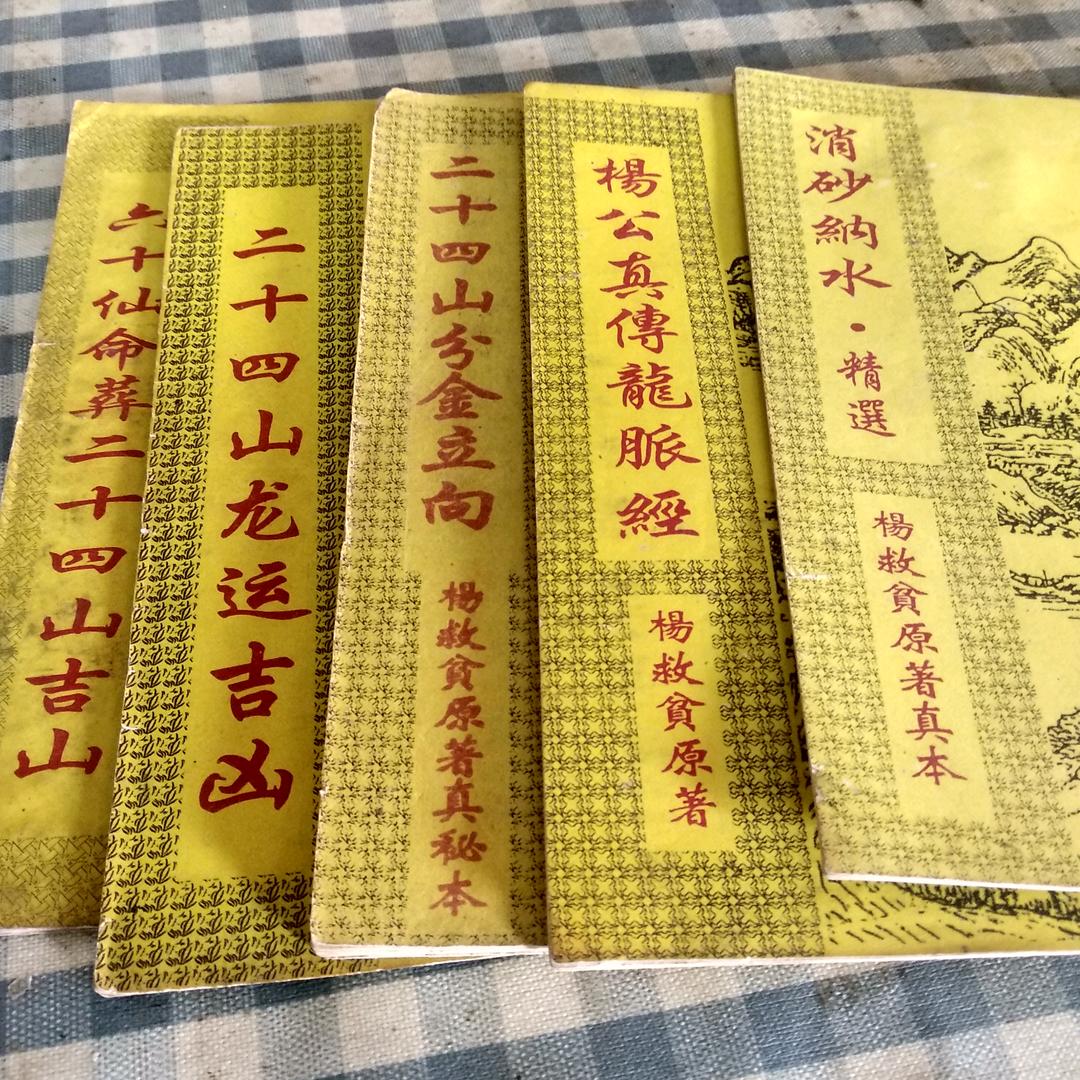 六十仙命葬二十四山吉山
二十四山龙运吉凶
二十四山分金立向
楊救貧原著真秘本
楊公真傳龍脈經
楊救貧原著
消砂納水·精選
楊救貧原著真本